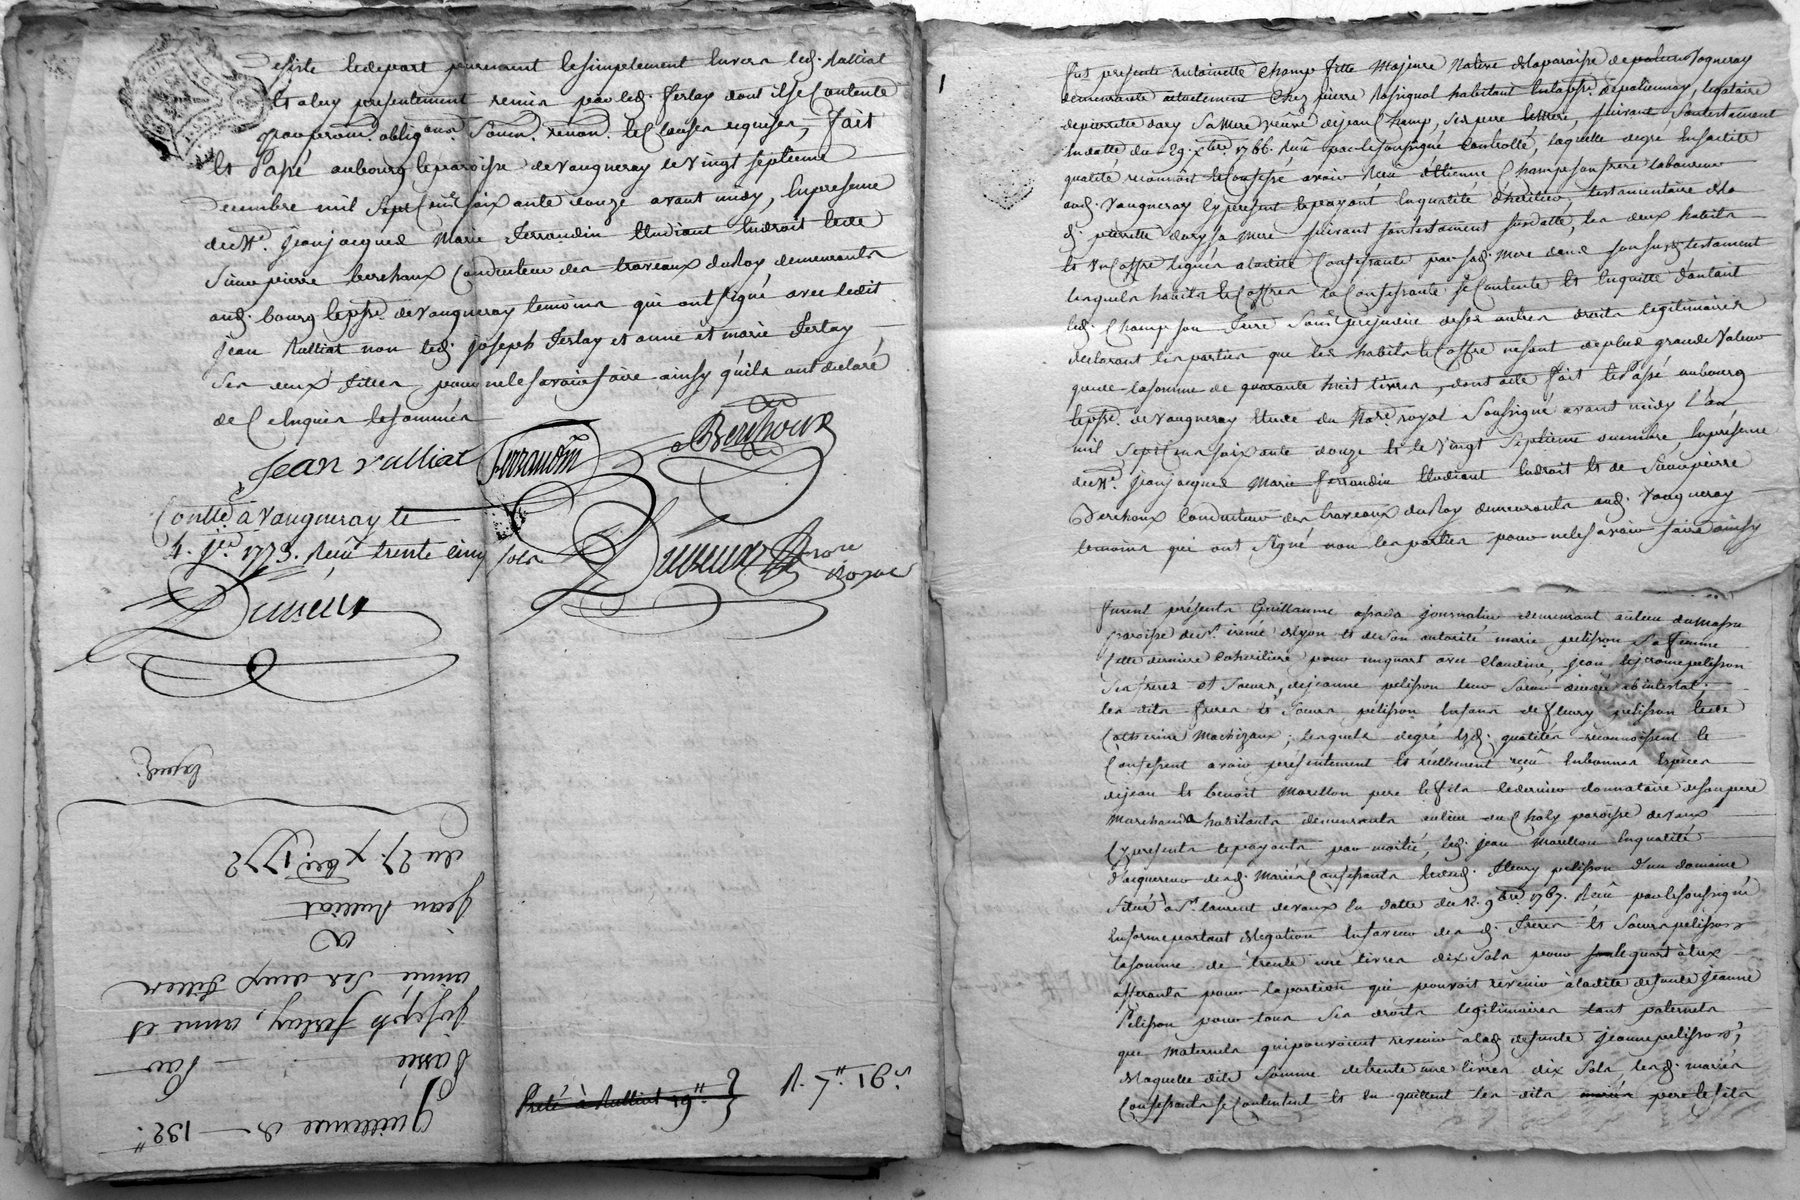 desiste se depart purement et simplement envers led. Rulliat
et a luy presentement remis par led. Ferlay dont il se contente
par prom. oblig.ons soum. renon. et clauses requises, fait
et Passé au bourg et paroisse de Vaugneray le vingt septieme
decembre mil sept cent soixante douze avant midy, En presence
de M.e jean jacques Marie Ferrandin Etudiant En droit et de
Sieur pierre berchoux Conducteur des travaux du Roy demeurants
aud. bourg et psse. de Vaugneray temoins qui ont signé avec ledit
jean Rulliat non led. joseph Ferlay et anne et marie Ferlay
ses deux filles pour ne le savoir faire ainsy qu'ils ont declaré
de Ce Enquis et sommés
jean rulliat Ferrandin Berchoux
Contllé a vaugneray le
4. jer. 1773. Recu trente cinq sols
Dusseux Nore royal
Dusseux
Exped.
du 27. xbre. 1772
jean Rulliat
a
anne ses deux filles
joseph ferlay, anne et
Passée par
Quittance de 132.#
Preté à Rulliat 19.#
fut presente antoinette Champ fille Majeure Native de la paroisse de Vaugneray
demeurante actuellement Chez pierre Rossignol habitant En la psse. de pollionnay, legataire
de pierrette dory sa Mere veuve de jean Champ, ses pere et Mere, suivant son testament
En datte du 29. xbre. 1766. Recu par le soussigné Controllé, laquelle de gré En sadite
qualité reconnoit et Confesse avoir Recu d'Etienne Champ son frere laboureur
aud. Vaugneray Cy present et payant En qualité d'heritier testamentaire de la
d. pierrette dory sa Mere suivant son testament susdatté, les deux habits
et un Coffre legués a ladite Confessante par sad. Mere dans son susd. testament
desquels habits et Coffres la Confessante se Contente et En quitte d'autant
led. Champ son frere sans prejudice de ses autres droits legitimaires
declarant les parties que les habits et Coffre ne sont de plus grande Valeur
que de la somme de quarante huit livres, dont acte fait et Passé au bourg
et psse. de Vaugneray Etude du No.re royal Soussigné avant midy l'an
mil sept cent soixante douze et le vingt septieme decembre, En presence
de M.e jean jacques Marie Ferrandin Etudiant En droit et de Sieur pierre
Berchoux Conducteur des travaux du Roy demeurants aud. Vaugneray
temoins qui ont signé non les parties pour ne le savoir faire ainsy
furent présents Guillaume journalier demeurant au lieu du
paroisse de St. irenée de lyon et de son autorité marie pelisson sa femme
Cette derniere Coheritiere pour un quart avec Claudine, jean et jerome pelisson
ses freres et soeurs, de jeanne pelisson leur soeur decedée ab intestat,
les dits freres et soeurs pelisson Enfans de fleury pelisson et de
Catherine Machizaux; lesquels de gré Esd. qualités reconnoissent et
Confessent avoir présentement et réellement reçû En bonnes Espèces
de jean et benoit Morellon pere et fils et dernier donnataire de son pere
Marchands habitants demeurants au lieu du Choly paroisse de Vaux
Cy presents et payants par moitié, led. jean Morellon En qualité
d'acquereur desd. Mariés Confessants et dud. fleury pelisson d'un domaine
situé à St. laurent de vaux En datte du 12. 9bre. 1767. Recû par le soussigné
En forme portant delegation En faveur des d. freres et soeurs pelisson
la somme de trente une livres dix sols pour le quart à Eux
afferants pour la portion qui pouvoit revenir à ladite defunte jeanne
Pelisson pour tous ses droits legitimaires tant paternels
que Maternels qui pouvoient revenir a lad. defunte jeanne pelisson,
de laquelle dite somme de trente une livres dix sols, lesd. mariés
Confessants se Contentent et En quittent les dits pere et fils